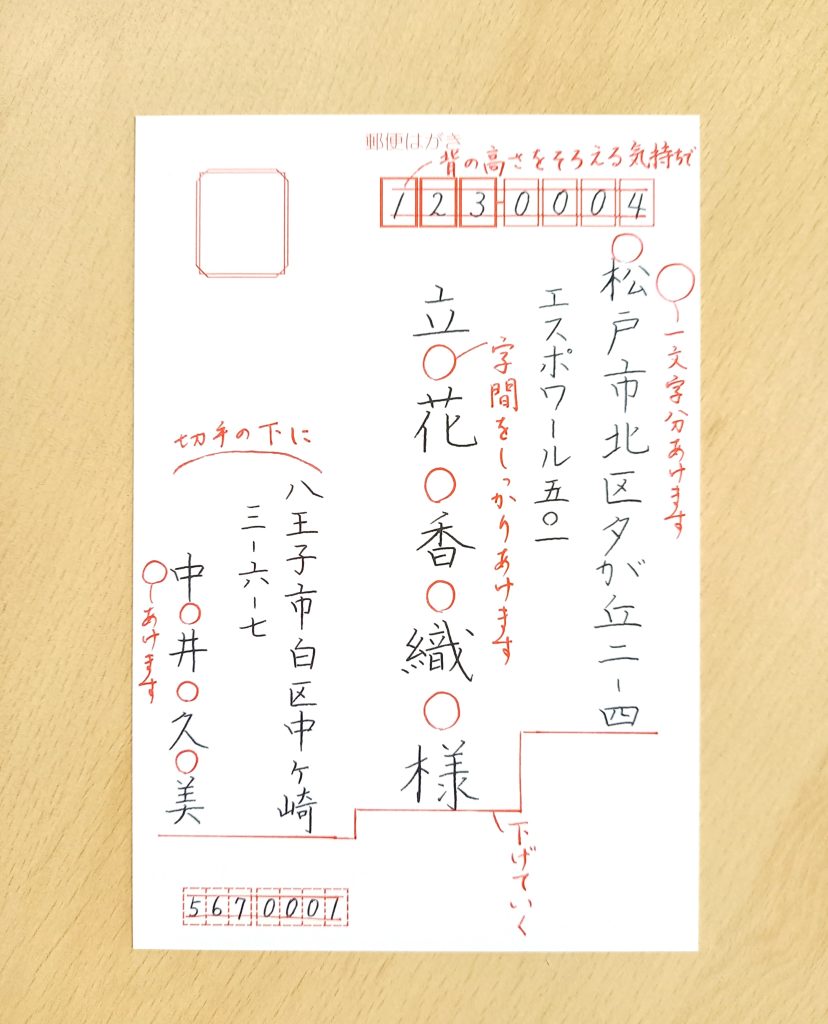 郵便はがき
背の高さをそろえる気持ちで
1230004
一文字分あけます
松戸市北区夕が丘二-四
エスポワール五〇一
字間をしっかりあけます
立花香織様
下げていく
切手の下に
八王子市白区中ヶ崎
三-六-七
中井久美
あけます
5670001